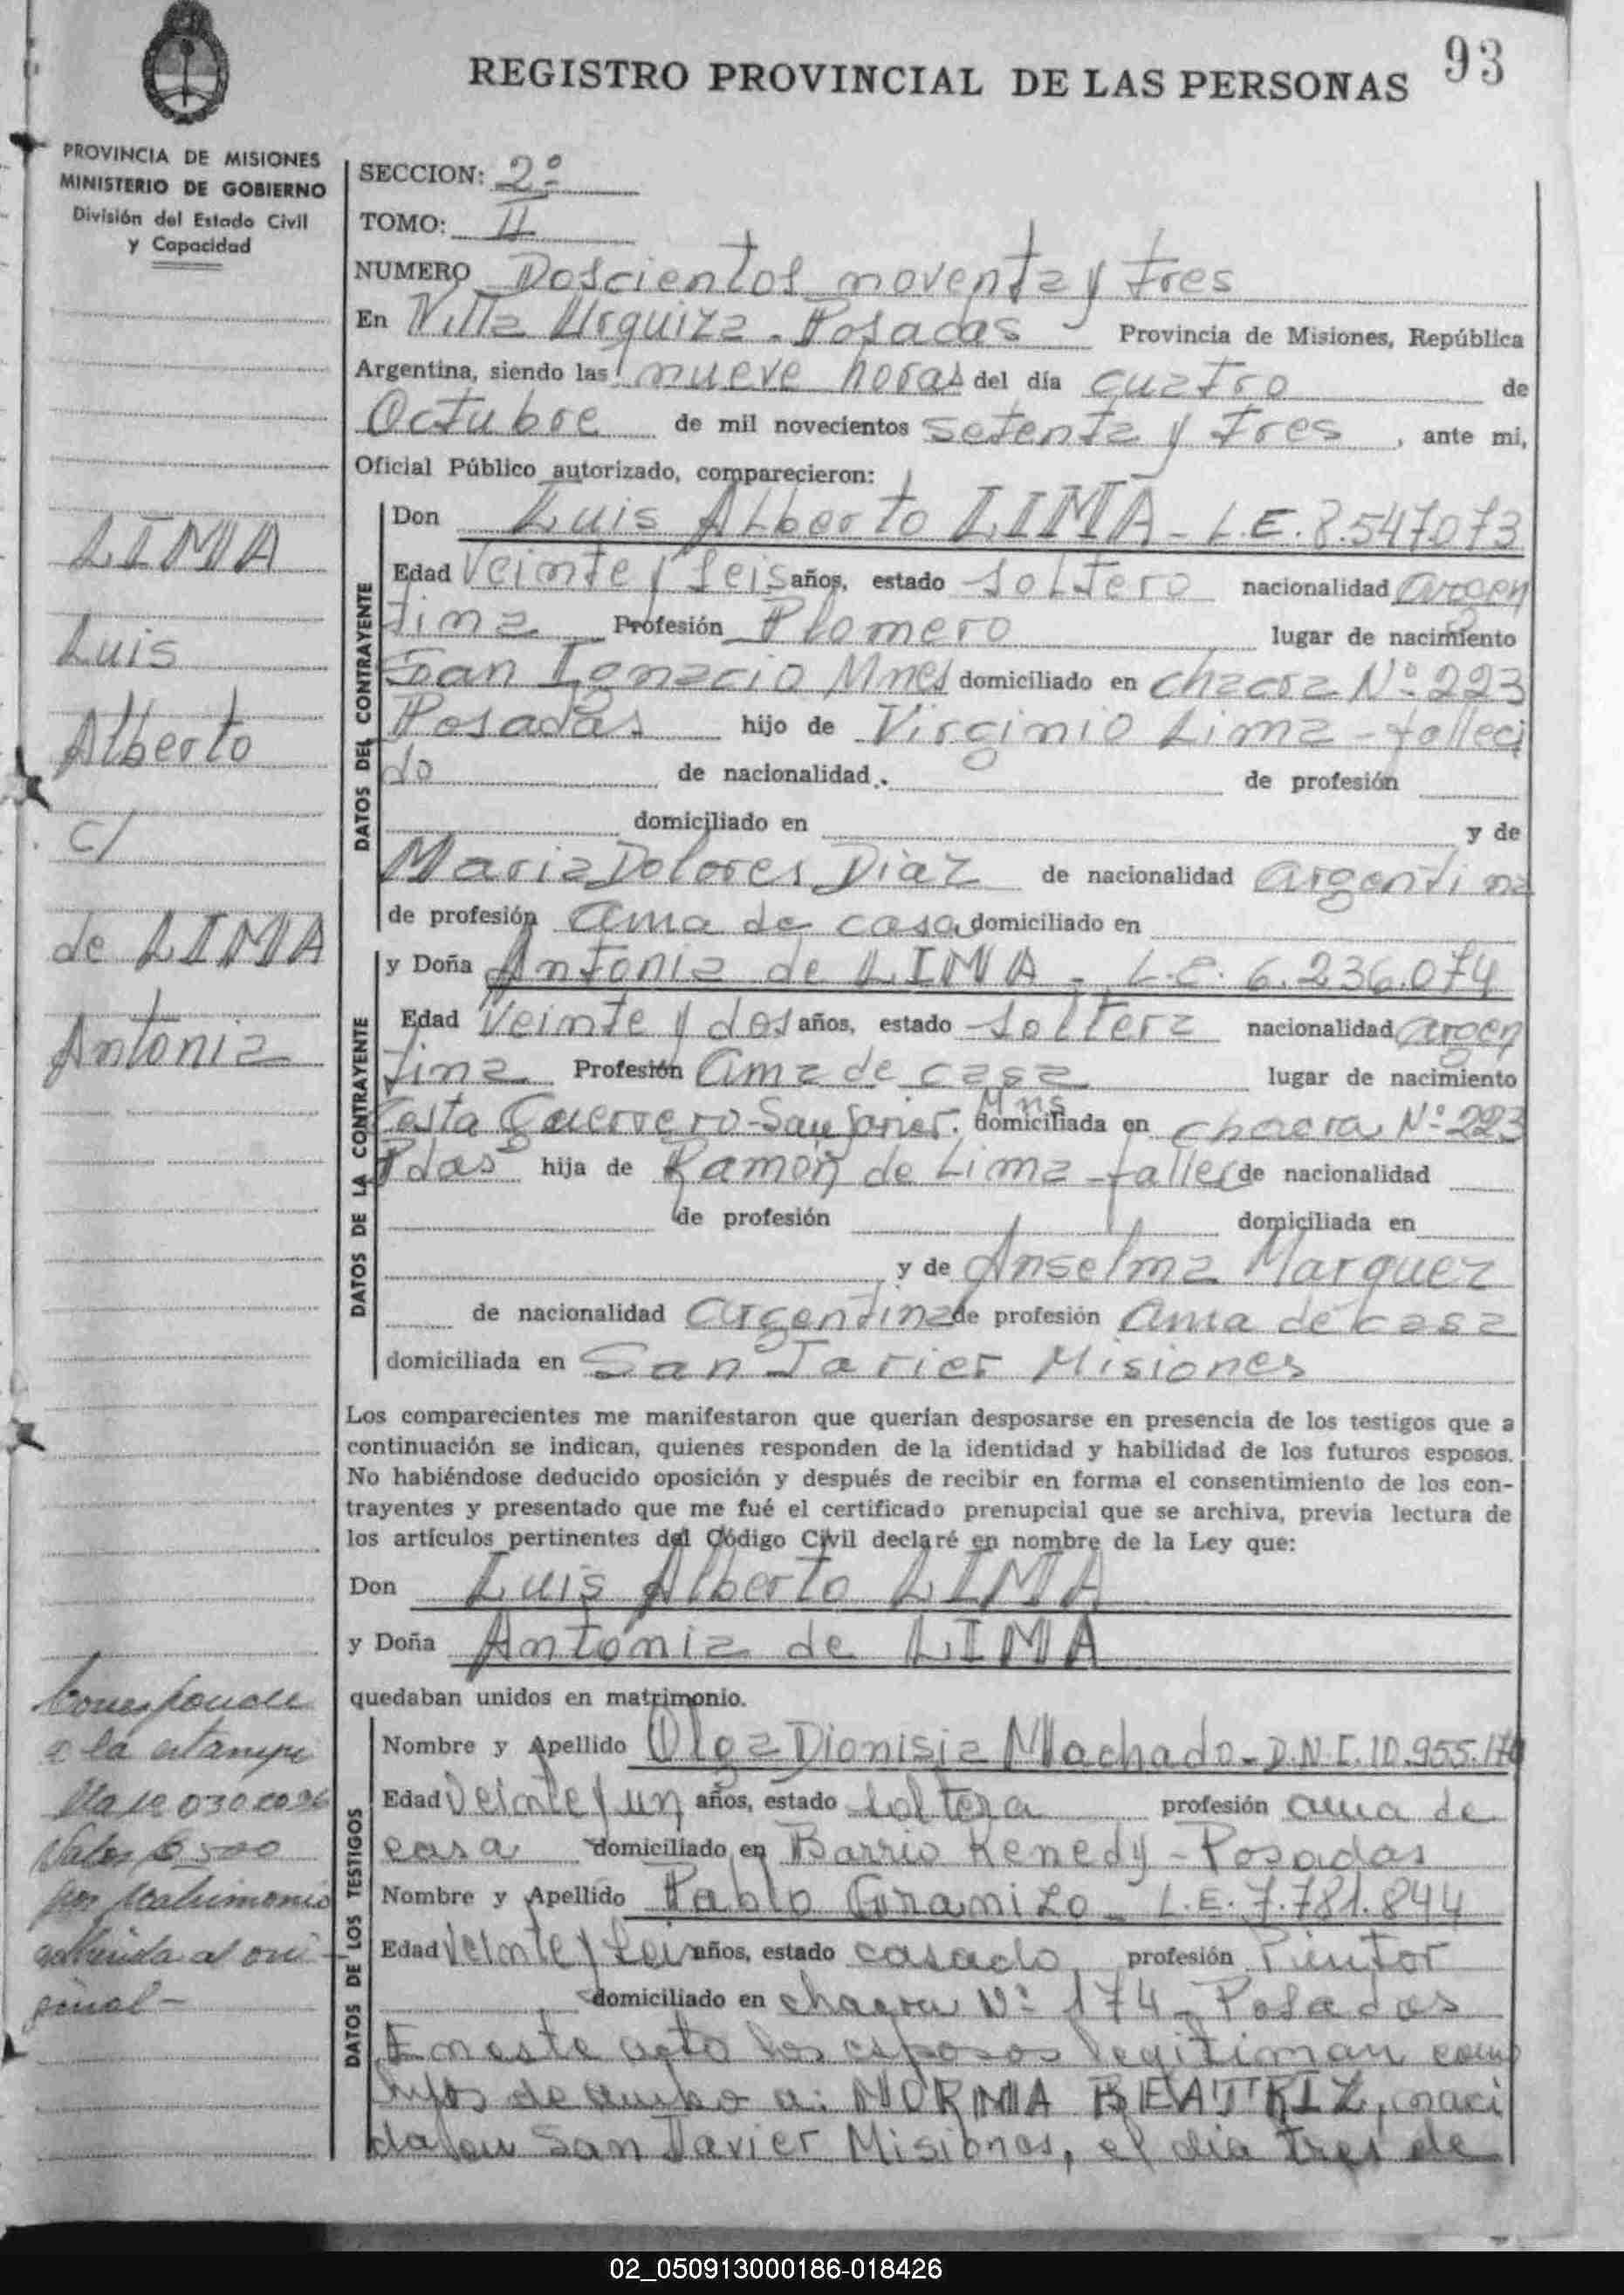 93
REGISTRO PROVINCIAL DE LAS PERSONAS
PROVINCIA DE MISIONES
MINISTERIO DE GOBIERNO
División del Estado Civil
y Capacidad
SECCION: 2º
TOMO: II
NUMERO Doscientos noventa y tres
En Villa Urquiza - Posadas Provincia de Misiones, República
Argentina, siendo las nueve horas del día cuatro de
Octubre de mil novecientos setenta y tres, ante mi,
Oficial Público autorizado, comparecieron:
DATOS DEL CONTRAYENTE
Don Luis Alberto LIMA - L.E. 8.547.073
Edad Veinte y seis años, estado soltero nacionalidad argen
tina Profesión Plomero lugar de nacimiento
San Ignacio Mnes domiciliado en chacra Nº 223
Posadas hijo de Virginio Lima - falleci
do de nacionalidad de profesión
domiciliado en y de
Maria Dolores Diaz de nacionalidad argentina
de profesión ama de casa domiciliado en
DATOS DE LA CONTRAYENTE
y Doña Antonia de LIMA - L.C. 6.236.074
Edad Veinte y dos años, estado soltera nacionalidad argen
tina Profesión ama de casa lugar de nacimiento
Costa Guerrero - San Javier. Mns domiciliada en chacra Nº 223
Pdas hija de Ramón de Lima - fallec de nacionalidad
de profesión domiciliada en
y de Anselma Marquez
de nacionalidad argentina de profesión ama de casa
domiciliada en San Javier Misiones
Los comparecientes me manifestaron que querían desposarse en presencia de los testigos que a
continuación se indican, quienes responden de la identidad y habilidad de los futuros esposos.
No habiéndose deducido oposición y después de recibir en forma el consentimiento de los con-
trayentes y presentado que me fué el certificado prenupcial que se archiva, previa lectura de
los artículos pertinentes del Código Civil declaré en nombre de la Ley que:
Don Luis Alberto LIMA
y Doña Antonia de LIMA
quedaban unidos en matrimonio.
DATOS DE LOS TESTIGOS
Nombre y Apellido Olga Dionisia Machado - D.N.I. 10.955.
Edad Veinte y un años, estado soltera profesión ama de
casa domiciliado en Barrio Kenedy - Posadas
Nombre y Apellido Pablo Gramizo - L.E. 7.781.844
Edad Veinte y seis años, estado casado profesión Pintor
domiciliado en chacra Nº 174 - Posadas
En este acto los esposos legitiman como
hijos de ambo a: NORMA BEATRIZ, naci
da en San Javier Misiones, el dia tres de
LIMA
Luis
Alberto
c/
de LIMA
Antonia
Corresponde
a la estampi
lla
Valor $ 500
por matrimonio
adherida al ori
ginal -
02_050913000186-018426